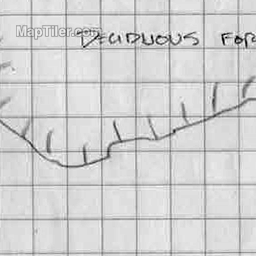 MapTiler.com
DECIDUOUS FOR